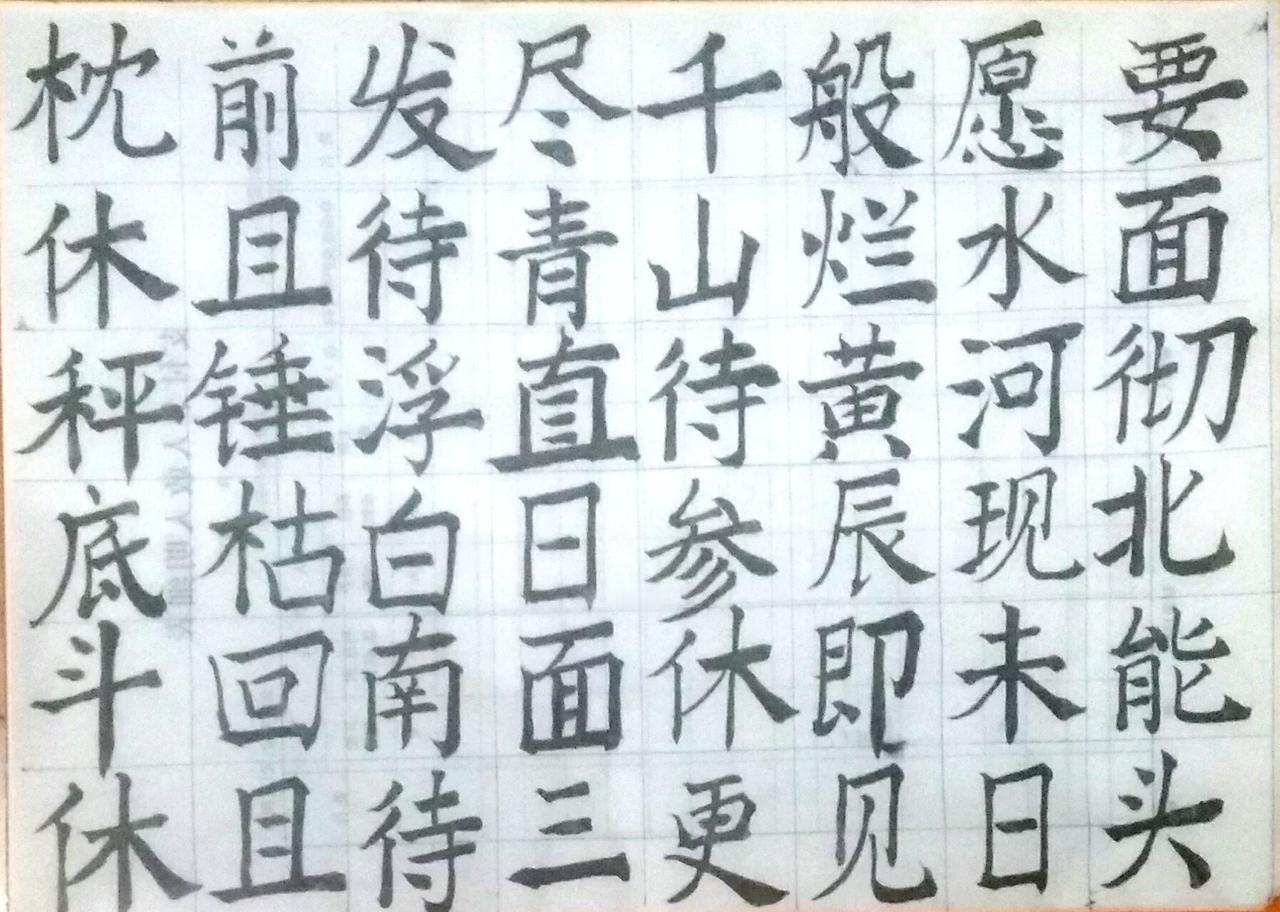 枕前发尽千般愿要
休且待青山烂水面
秤锤浮直待黄河彻
底枯白日参辰现北
斗回南面休即未能
休且待三更见日头